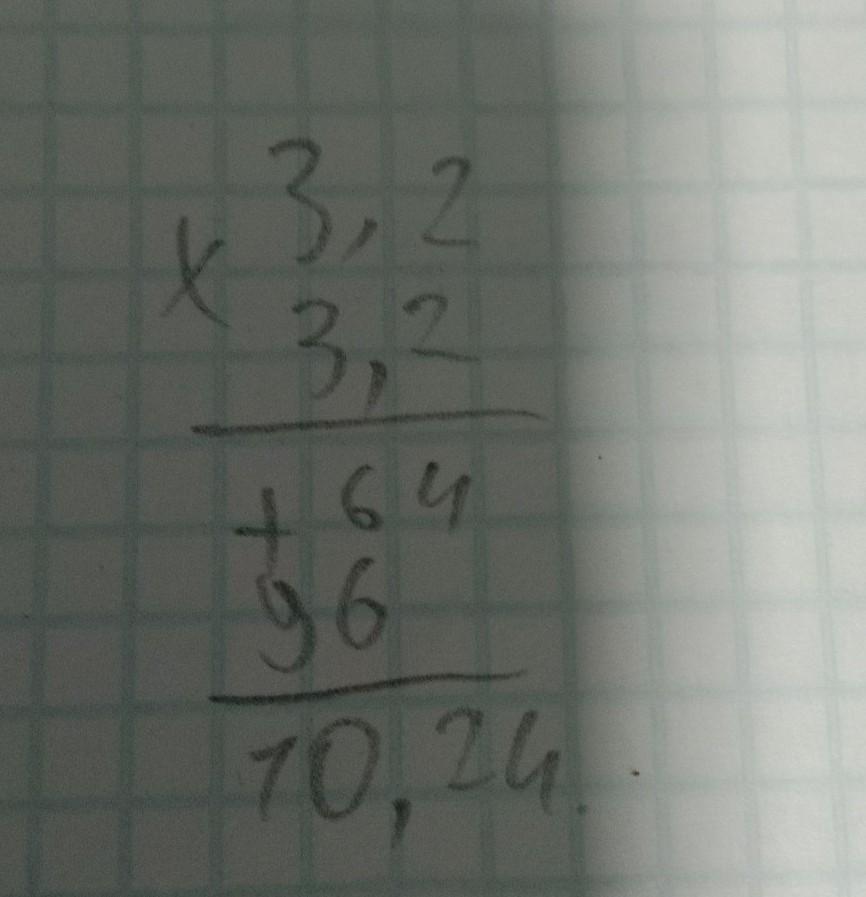 3,2
x
3,2
+ 64
96
10,24.